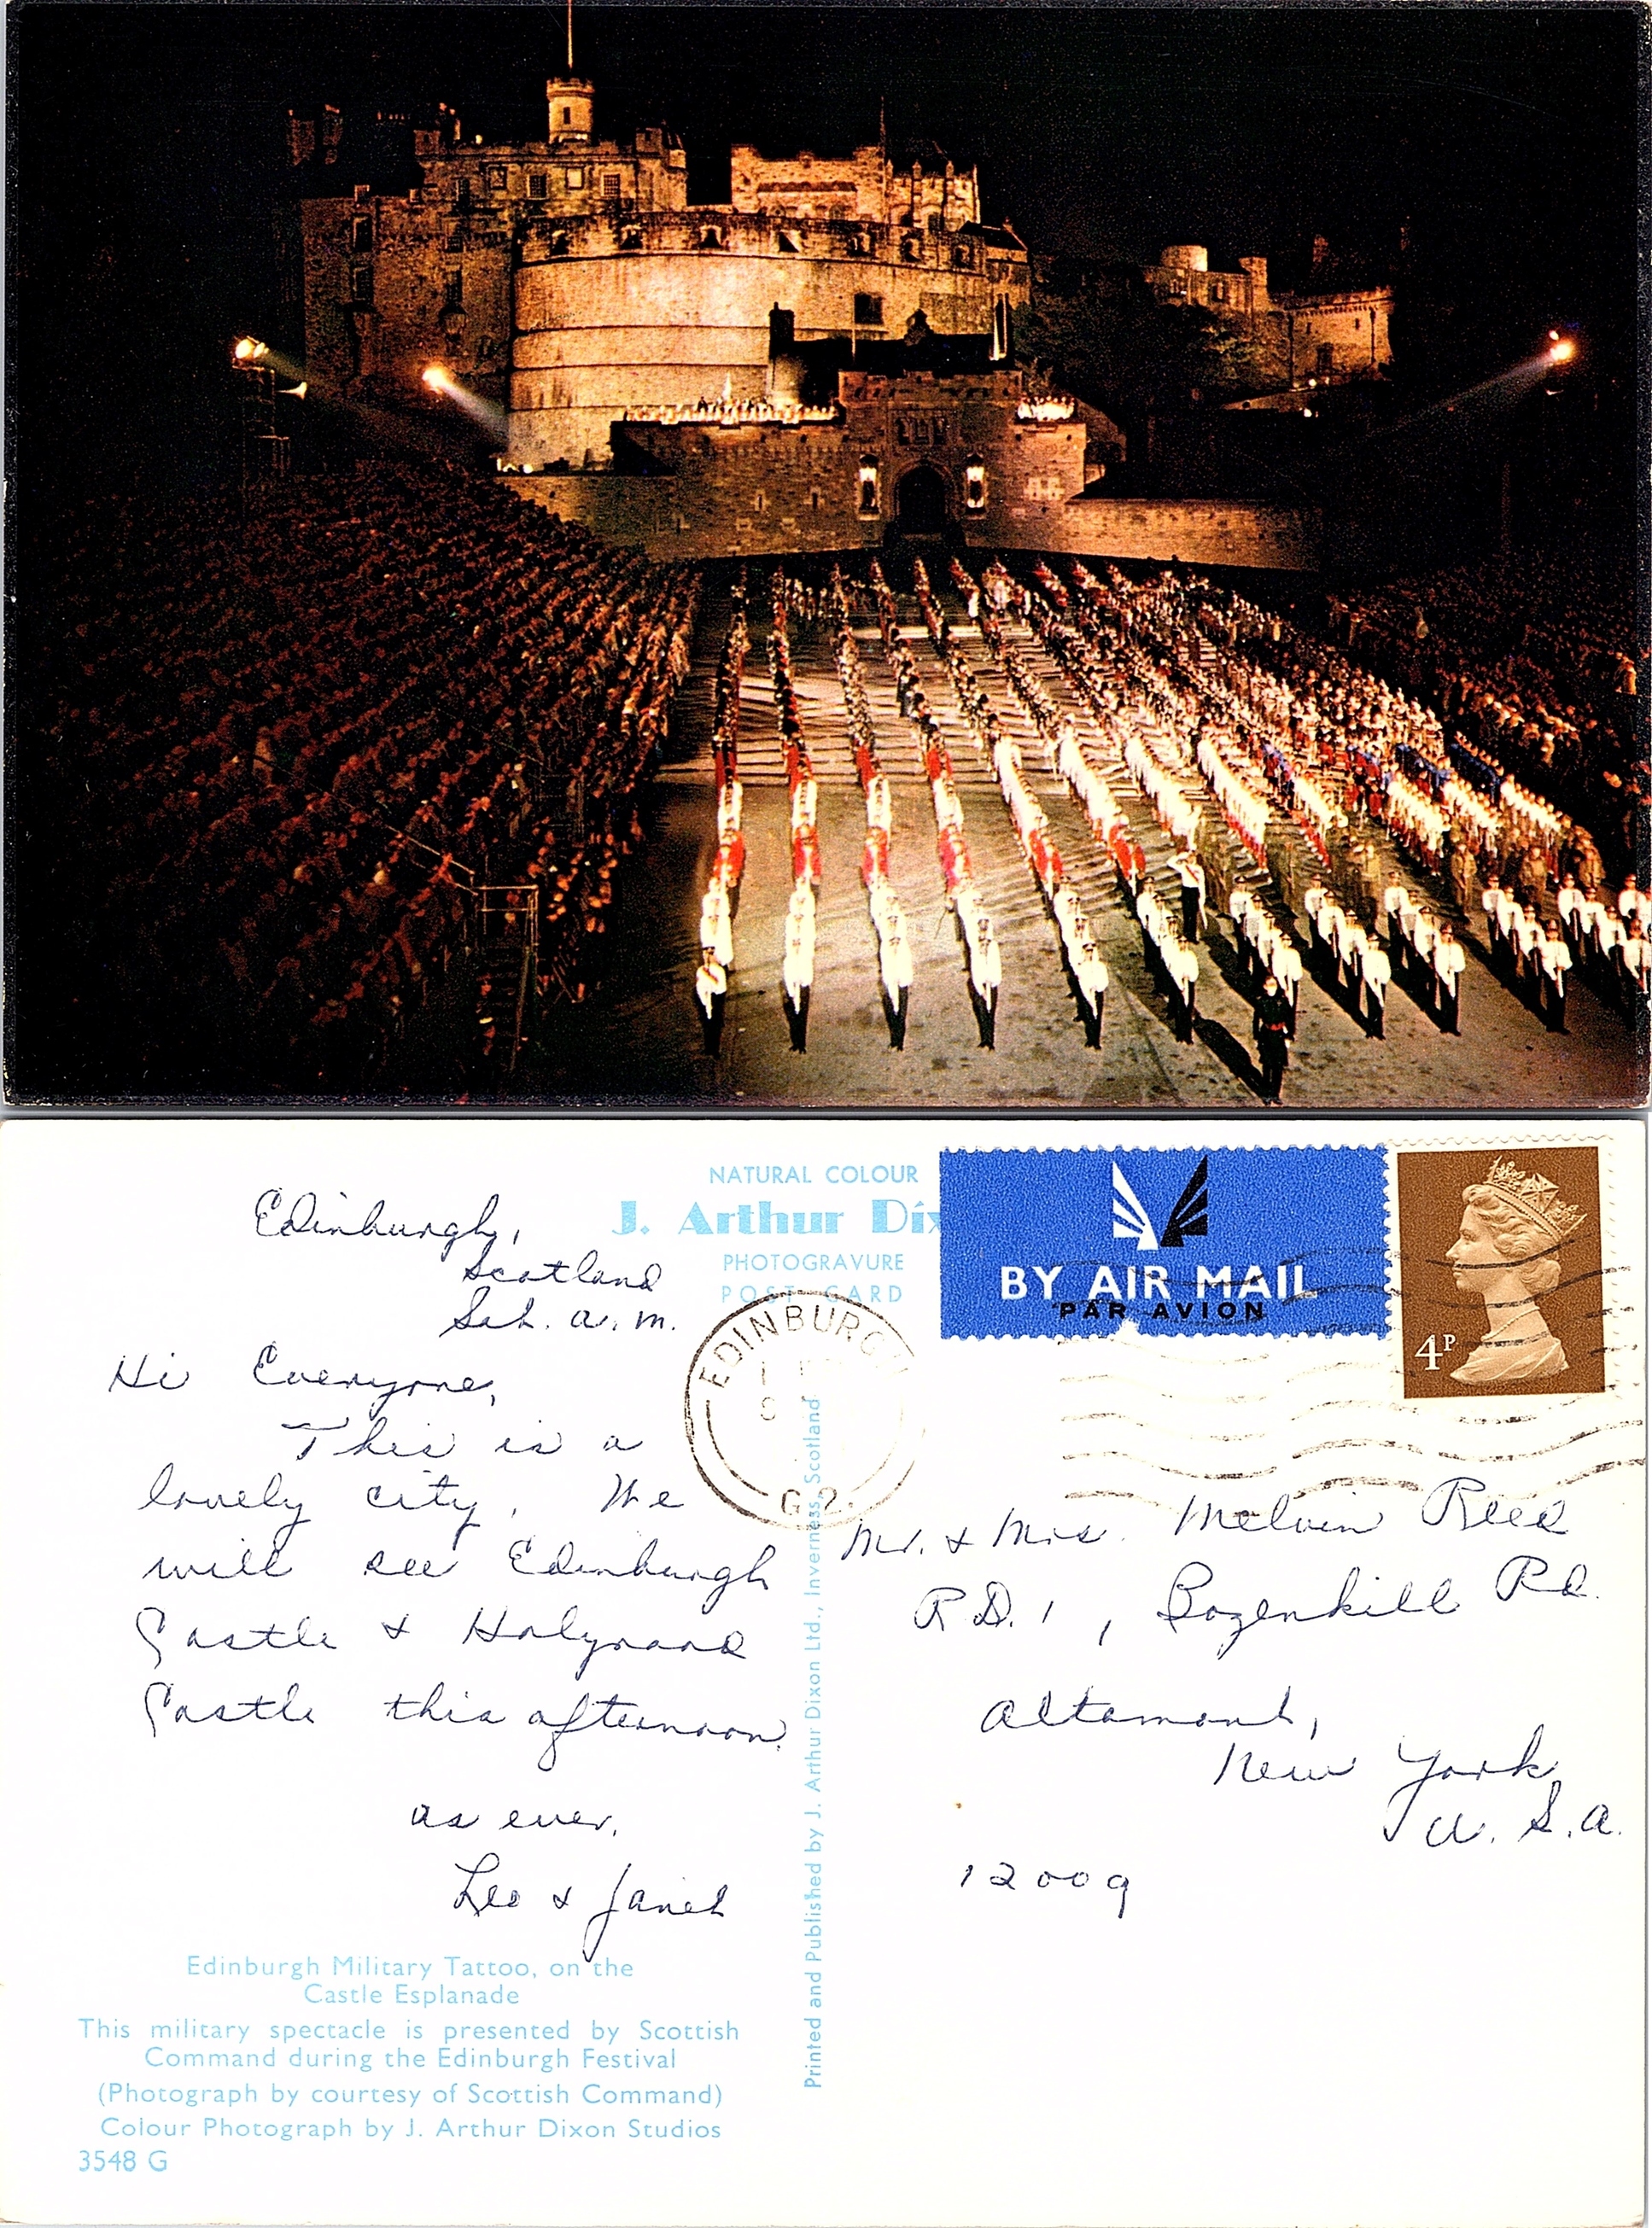 NATURAL COLOUR
J. Arthur Dix
PHOTOGRAVURE
POST CARD
BY AIR MAIL
PAR AVION
4P
EDINBURGH
G.2.
Edinburgh,
Scotland
Sat. a.m.
Hi Everyone,
This is a
lovely city. We
will see Edinburgh
Castle & Holyrood
Castle this afternoon.
as ever,
Leo & Janet
Edinburgh Military Tattoo, on the
Castle Esplanade
This military spectacle is presented by Scottish
Command during the Edinburgh Festival
(Photograph by courtesy of Scottish Command)
Colour Photograph by J. Arthur Dixon Studios
3548 G
Printed and Published by J. Arthur Dixon Ltd., Inverness, Scotland
Mr. & Mrs. Melvin Reed
R.D. 1, Bozenkill Rd.
Altamont,
New York
U.S.A.
12009